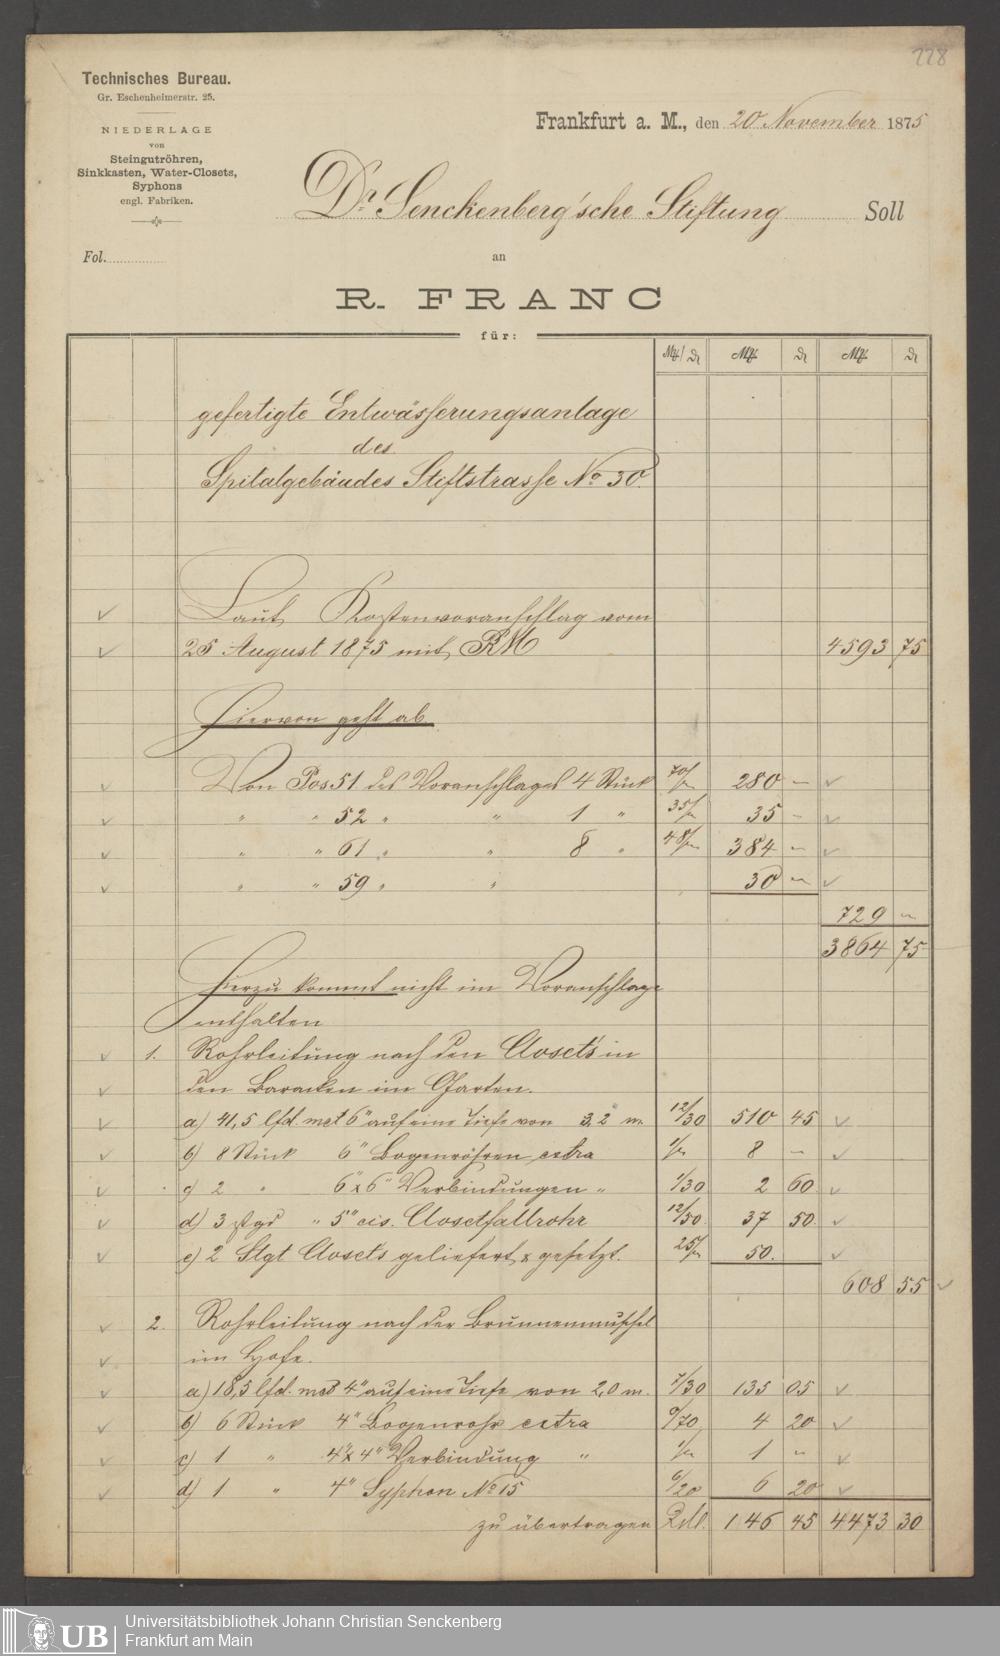 228
Technisches Bureau.
Gr. Eschenheimerstr. 25.
NIEDERLAGE
von
Steingutröhren,
Sinkkasten, Water-Closets,
Syphons
engl. Fabriken.
Fol.
Frankfurt a. M., den 20 November 1875
Dr. Senckenberg'sche Stiftung Soll
an
R. FRANC
für:
gefertigte Entwässerungsanlage
des
Spitalgebäudes Stiftstrasse No 30.
Laut Kostenvoranschlag vom
25 August 1875 mit RM 4593 75
Hiervon geht ab
Von Pos 51 des Voranschlages 4 Stück 70/- 280 -
" " 52 " " 1 " 35/- 35 -
" " 61 " " 8 " 48/- 384 -
" " 59 " " 30 -
729 -
3864 75
Hierzu kommt nicht im Voranschlage
enthalten
1. Rohrleitung nach den Closets in
den Baracken im Garten.
a) 41,5 lfd. met 6" auf eine Tiefe von 3,2 m. 12/30 510 45
b) 8 Stück 6" Bogenröhren extra 1/- 8 -
c) 2 " 6" x 6" Verbindungen " 1/30 2 60
d) 3 " 5" eis. Closetfallrohr 12/50 37 50
e) 2 Stgt Closets geliefert & gesetzt. 25/- 50.
608 55
2. Rohrleitung nach der Brunnenmuschel
im Hofe.
a) 18,5 lfd. met 4" auf eine Tiefe von 2,0 m. 7/30 135 05
b) 6 Stück 4" Bogenrohr extra 0/70 4 20
c) 1 " 4" x 4" Verbindung " 1/- 1 -
d) 1 " 4" Syphon No 15 6/20 6 20
zu übertragen 146 45 4473 30
UB
Universitätsbibliothek Johann Christian Senckenberg
Frankfurt am Main